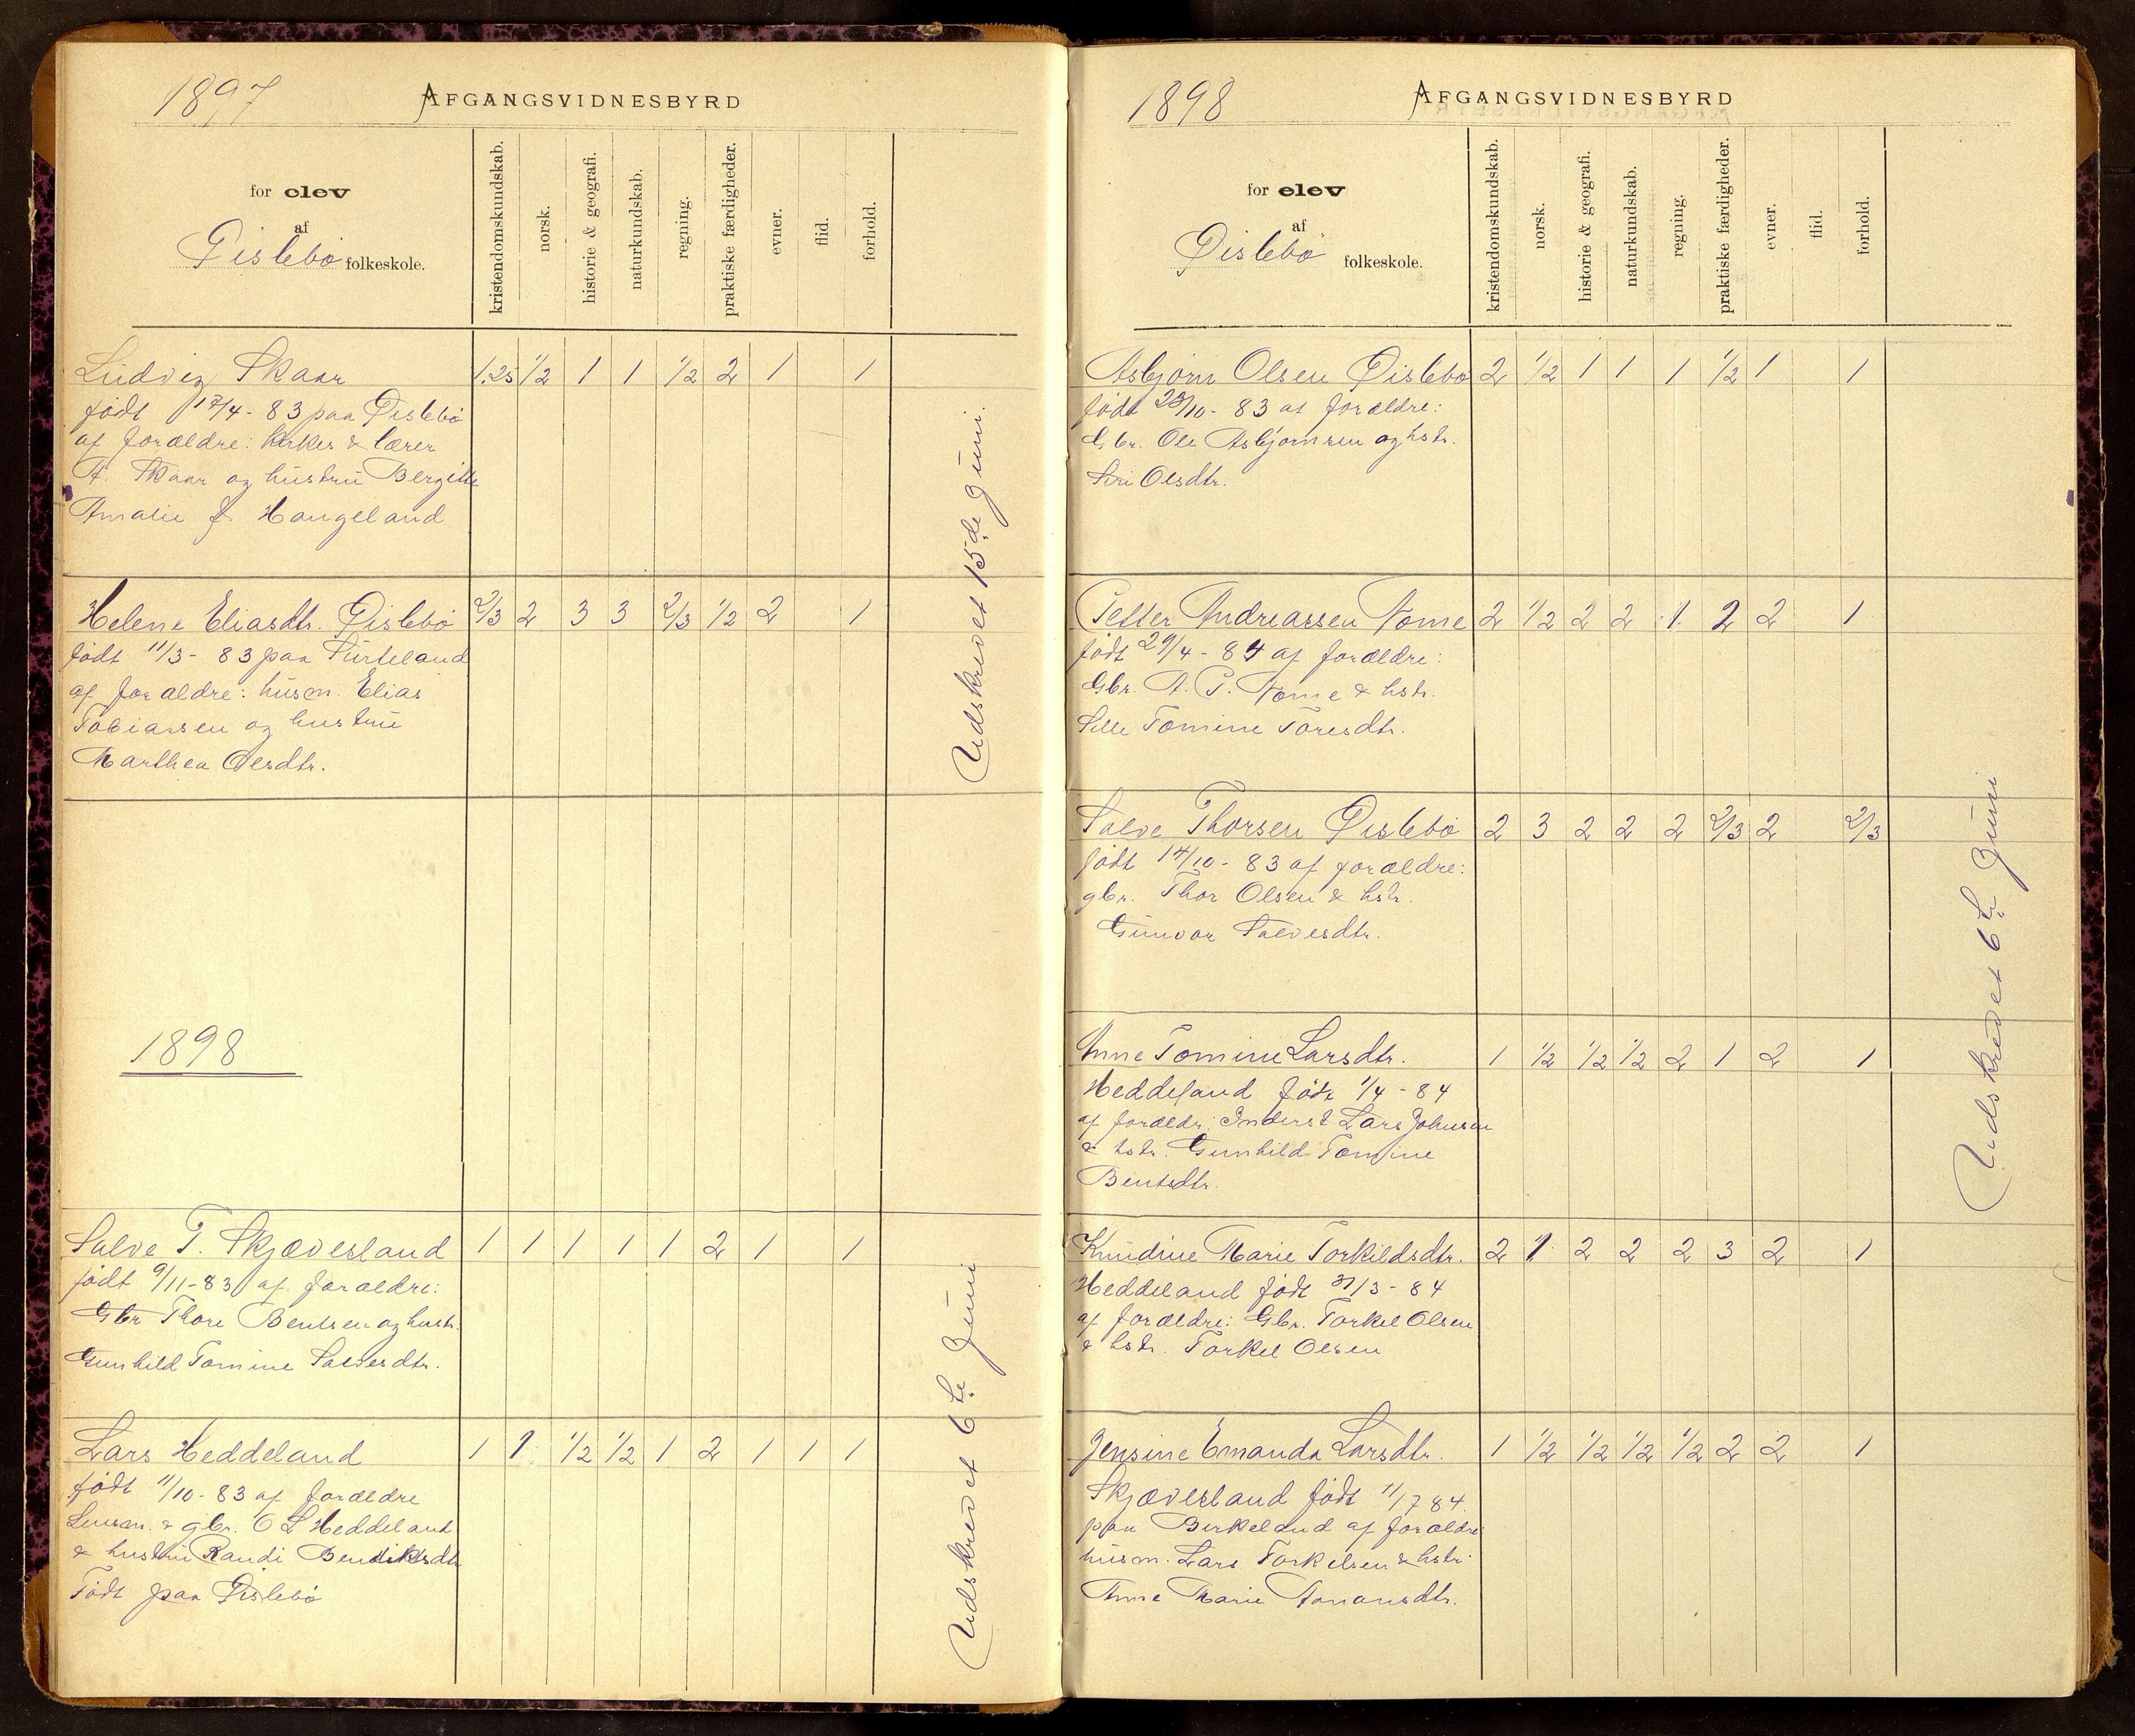 1897
AFGANGSVIDNESBYRD
for elev
af
Øislebø folkeskole.
kristendomskundskab.
norsk.
historie & geografi.
naturkundskab.
regning.
praktiske færdigheder.
evner.
flid.
forhold.
Ludvig Skaar 1.25 1/2 1 1 1/2 2 1 1
født 17/4 - 83 paa Øislebø
af forældre: kirkes & lærer
A. Skaar og hustru Bergitte
Amalie f. Haugeland
Helene Eliasdtr. Øislebø 2/3 2 3 3 2/3 1/2 2 1
født 11/3 - 83 paa
af forældre: husm. Elias
Tobiassen og hustru
Marthea Olesdtr.
Udskrevet 15de Juni.
1898
Salve T. Skjævesland 1 1 1 1 1 2 1 1
født 9/11 - 83 af forældre:
Gbr Thore Bentsen og hustr.
Gunhild Tomine Salvesdtr.
Lars Heddeland 1 1 1/2 1/2 1 2 1 1 1
født 11/10 - 83 af forældre
Lensm. & gbr. O L Heddeland
& hustru Randi Bendiksdtr
Født paa Øislebø
Udskrevet 6te Juni
1898
AFGANGSVIDNESBYRD
for elev
af
Øislebø folkeskole.
kristendomskundskab.
norsk.
historie & geografi.
naturkundskab.
regning.
praktiske færdigheder.
evner.
flid.
forhold.
Asbjørn Olsen Øislebø 2 1/2 1 1 1 1/2 1 1
født 23/10 - 83 af forældre:
Gbr. Ole Asbjørnsen og hstr.
Siri Olsdtr.
Petter Andreassen Nome 2 1/2 2 2 1 2 2 1
født 29/4 - 84 af forældre:
Gbr. A. P. Nome & hstr.
Sille Tomine Toresdtr.
Salve Thorsen Øislebø 2 3 2 2 2 2/3 2 2/3
født 14/10 - 83 af forældre:
gbr. Thor Olsen & hstr.
Gunvor Salvesdtr.
Anne Tomine Larsdtr. 1 1/2 1/2 1/2 2 1 2 1
Heddeland født 1/4 - 84
af forældr: Inderst Lars Johnsen
& hstr. Gunhild Tomine
Bentsdtr.
Knudine Marie Torkildsdtr. 2 1 2 2 2 3 2 1
Heddeland født 31/3 - 84
af forældre: Gbr. Torkel Olsen
& hstr. Torkel Olsen
Jensine Emanda Larsdtr. 1 1/2 1/2 1/2 1/2 2 2 1
Skjævesland født 11/7 84.
paa Birkeland af forældre
husm. Lars Torkelsen & hstr.
Anne Marie Aanonsdtr.
Udskrevet 6te Juni